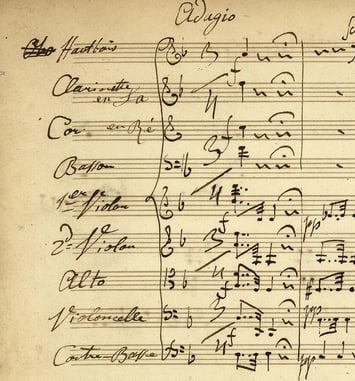 Adagio
Hautbois
Clarinette
en La
Cor en Ré
Basson
1er Violon
2d Violon
Alto
Violoncelle
Contre-Basse